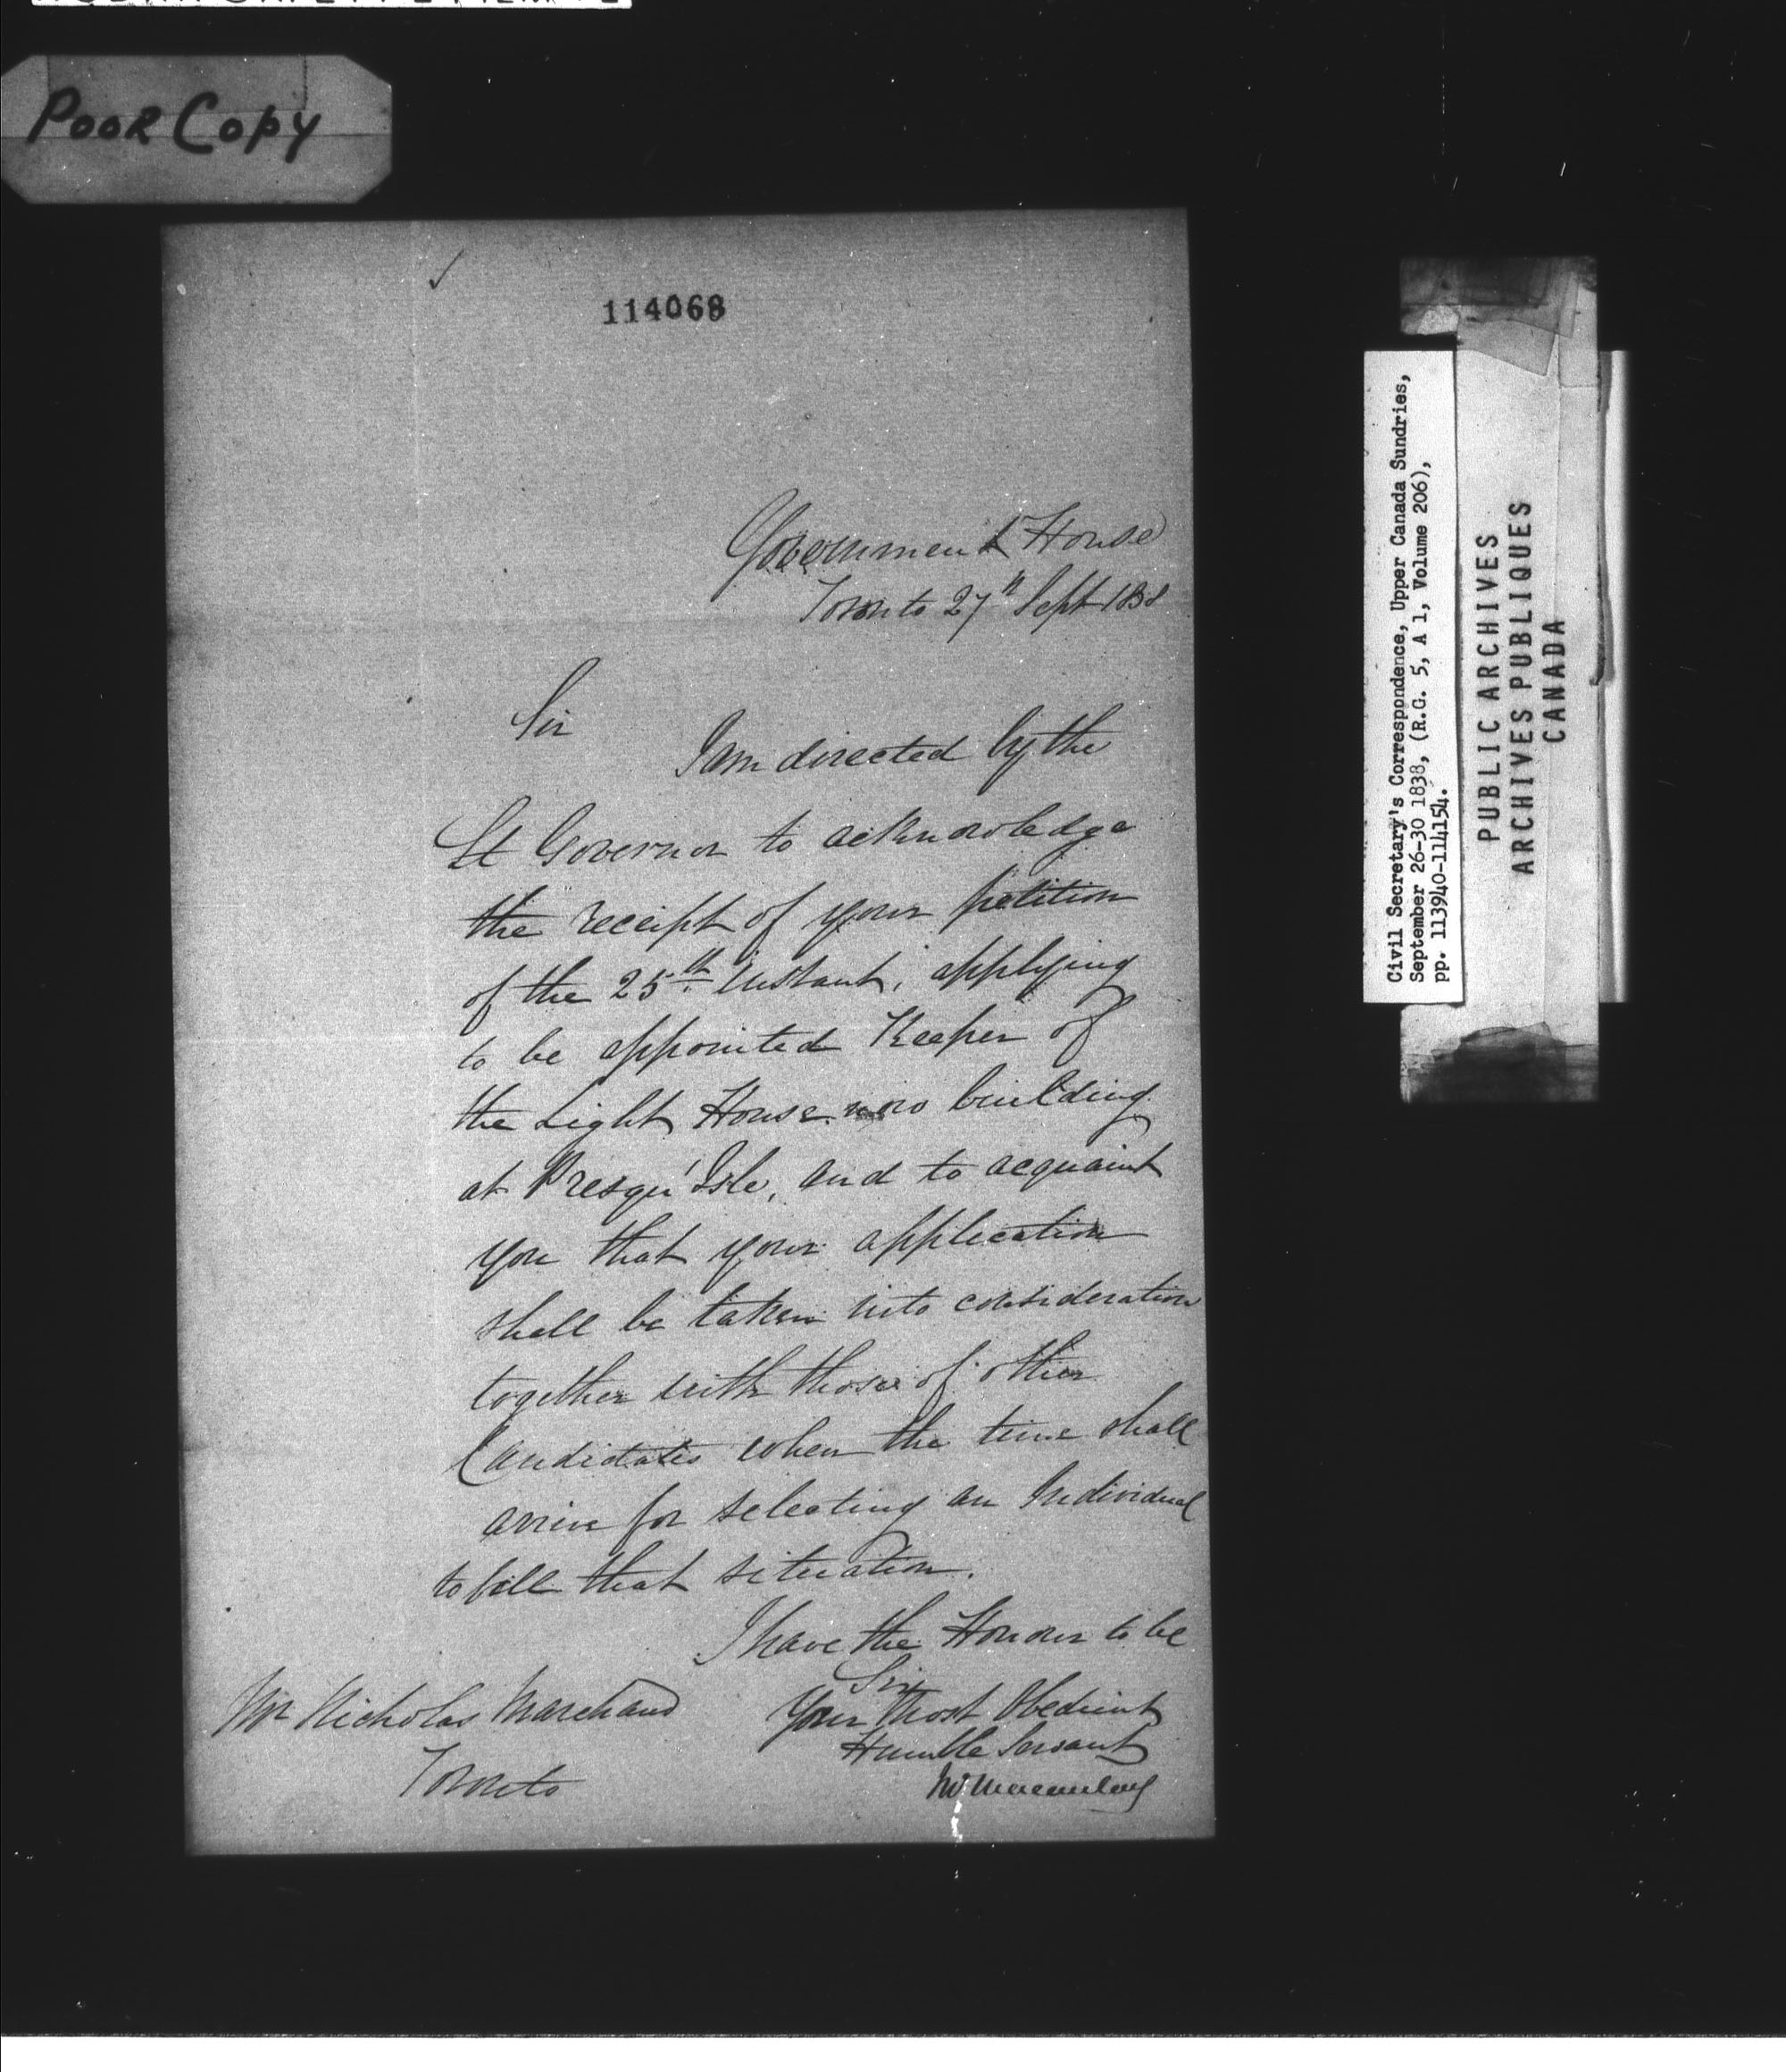 Poor Copy
114068
Government House
Toronto 27th Sept 1838
Sir
I am directed by the
Lt Governor to acknowledge
the receipt of your petition
of the 25th instant, applying
to be appointed Keeper of
the Light House now building
at Presqu'Isle, and to acquaint
you that your application
shall be taken into consideration
together with those of other
Candidates when the time shall
arrive for selecting an Individual
to fill that situation.
I have the Honour to be
Sir
Your Most Obedient
Humble Servant
Jno Macaulay
Mr Nicholas Marchand
Toronto
Civil Secretary's Correspondence, Upper Canada Sundries,
September 26-30 1838, (R.G. 5, A 1, Volume 206),
pp. 113940-114154.
PUBLIC ARCHIVES
ARCHIVES PUBLIQUES
CANADA